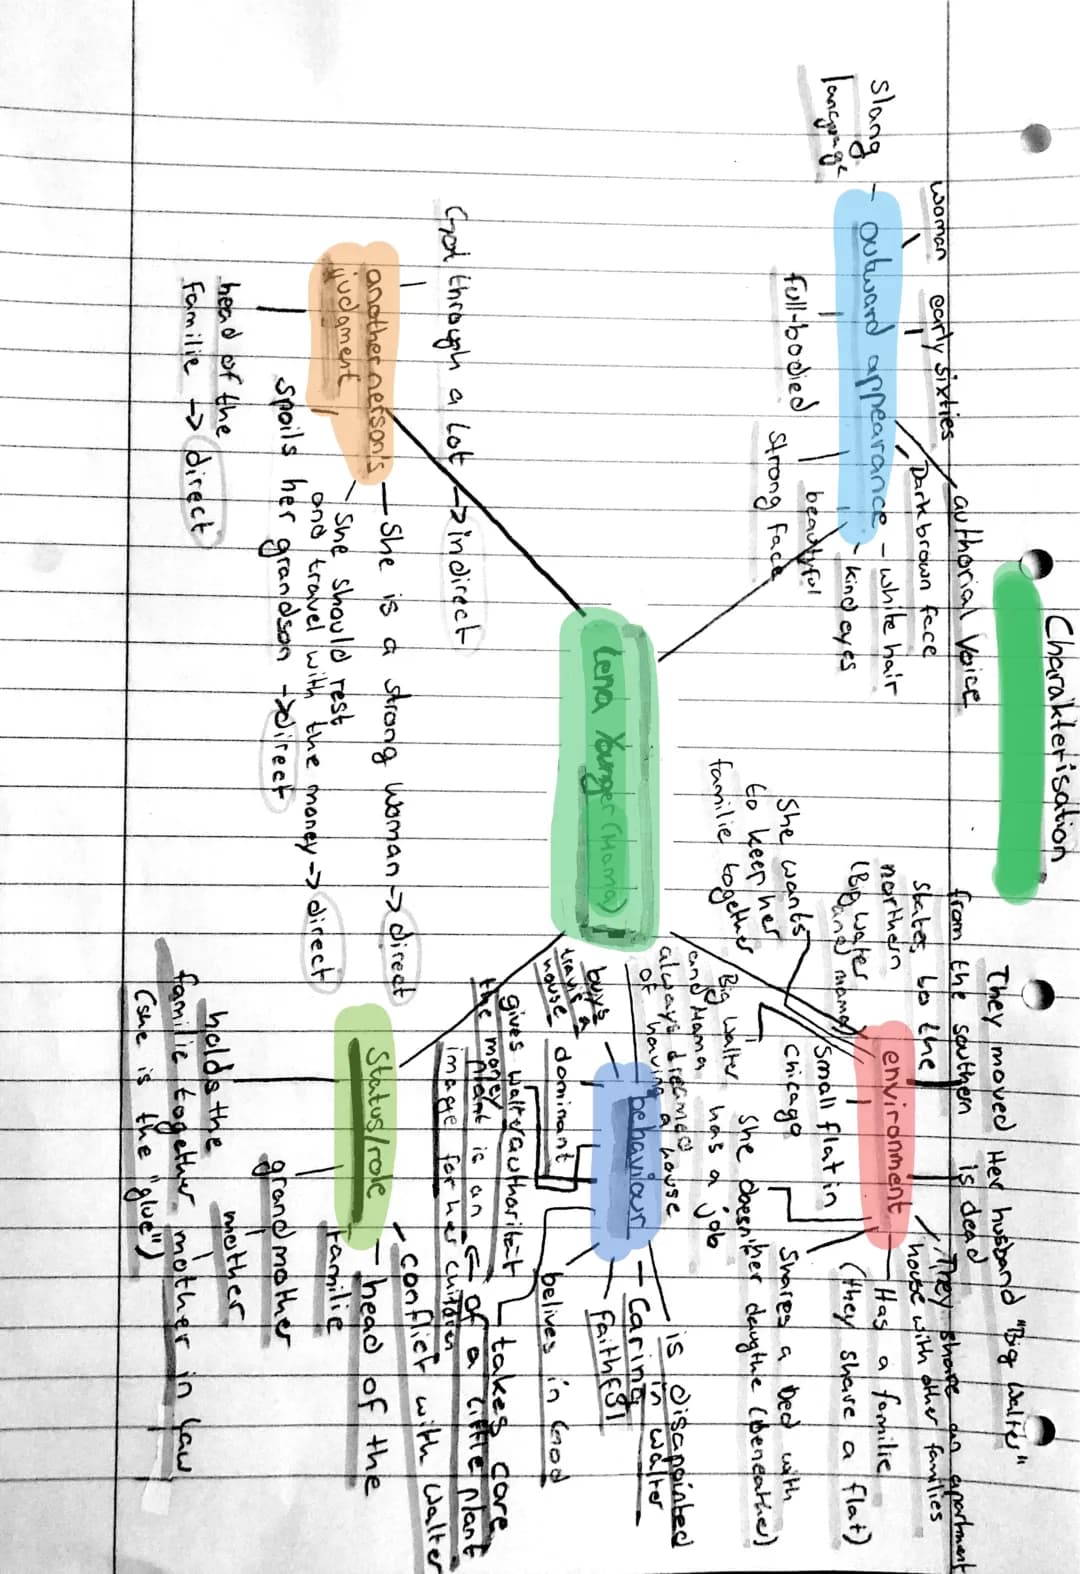 Charakterisation
Lena Younger (Mama)
outward appearance
authorial voice
woman
early sixties
slang
language
full-bodied
beautyful
strong face
Dark brown face
white hair
kind eyes
another person's
judgment
Got through a lot -> indirect
She is a strong woman -> direct
She should rest
and travel with the money -> direct
spoils her grandson -> direct
head of the
familie -> direct
environment
They moved
from the southen
states to the
northern
(Big Walter
and mama)
Her husband "Big Walter"
is dead
They share an apartment
house with other families
Has a familie
(they share a flat)
Shares a bed with
her daugthe (beneather)
She doesn't
has a job
Small flat in
Chicago
Big Walter
and Mama
always dreamed
of having a house
She wants
to keep her
familie together
behaviour
is disapointed
in walter
Caring
faithful
belives in God
takes care
of a little plant
plant is an
image for her children
dominant
gives Walter authoritit
the money
buys
travis a
house
Status/role
conflict with Walter
head of the
familie
grandmother
mother
mother in law
holds the
familie together
(she is the "glue")